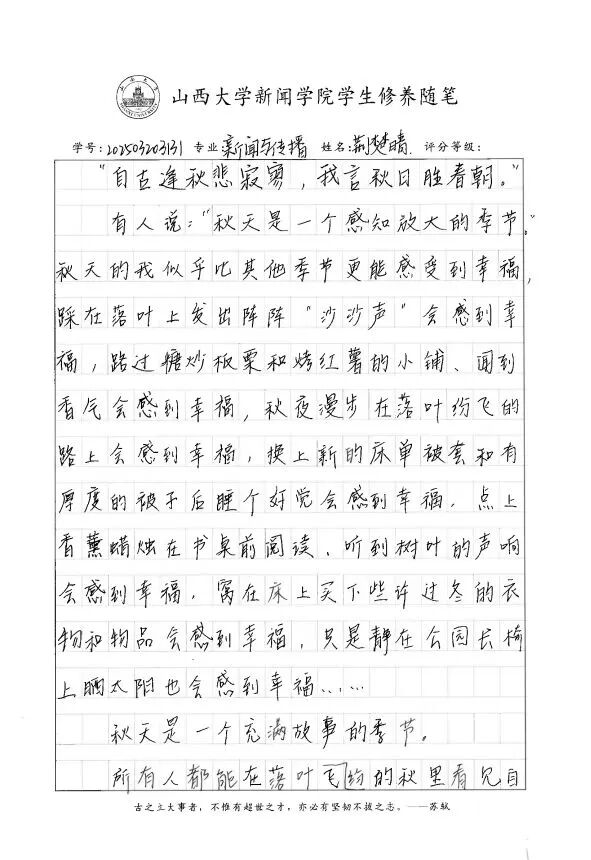 山西大学新闻学院学生修养随笔
学号：202503203131 专业 新闻与传播 姓名：荆楚晴 评分等级：
“自古逢秋悲寂寥，我言秋日胜春朝。”
有人说：“秋天是一个感知放大的季节。”
秋天的我似乎比其他季节更能感受到幸福，
踩在落叶上发出阵阵“沙沙声”会感到幸
福，路过糖炒板栗和烤红薯的小铺、闻到
香气会感到幸福，秋夜漫步在落叶纷飞的
路上会感到幸福，换上新的床单被套和有
厚度的被子后睡个好觉会感到幸福，点上
香薰蜡烛在书桌前阅读、听到树叶的声响
会感到幸福，窝在床上买下些许过冬的衣
物和物品会感到幸福，只是静在公园长椅
上晒太阳也会感到幸福……
秋天是一个充满故事的季节。
所有人都能在落叶飞纷的秋里看见自
古之立大事者，不惟有超世之才，亦必有坚韧不拔之志。——苏轼